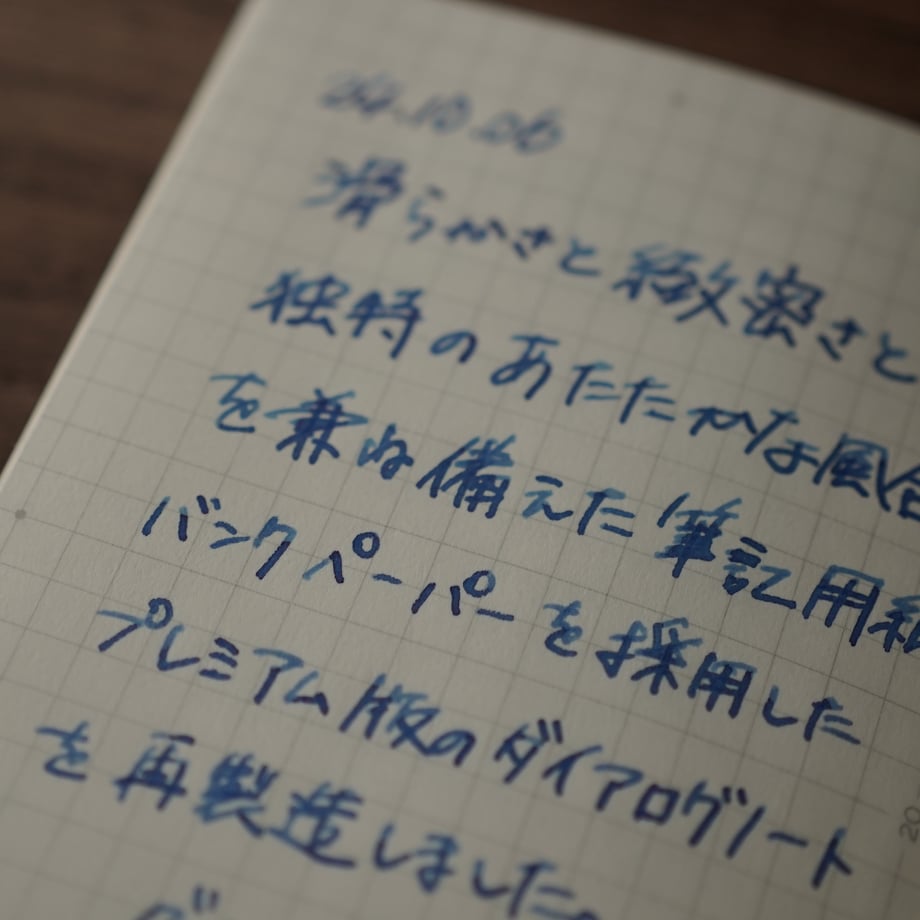 24.10.06
滑らかさと緻密さと
独特のあたたかな風合
を兼ね備えた筆記用紙
バンクペーパーを採用した
プレミアム版のダイアログノート
を再製造しました。
20